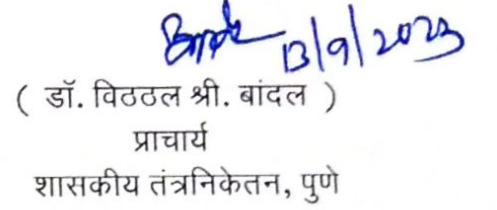 13/9/2023
( डॉ. विठठल श्री. बांदल )
प्राचार्य
शासकीय तंत्रनिकेतन, पुणे